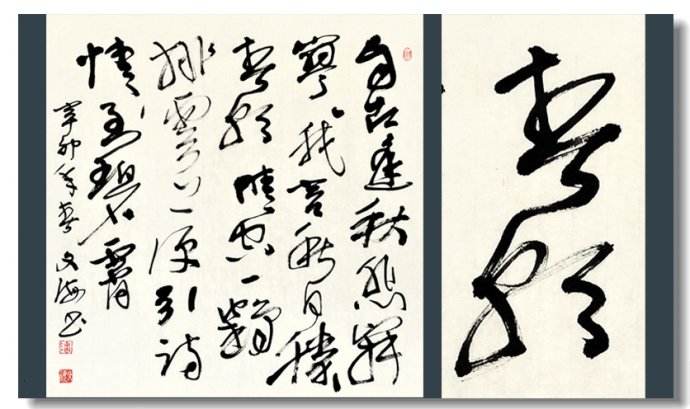 自古逢秋悲寂
寥我言秋日勝
春朝晴空一鶴
排雲上便引詩
情到碧霄
辛卯年春文海书
春朝